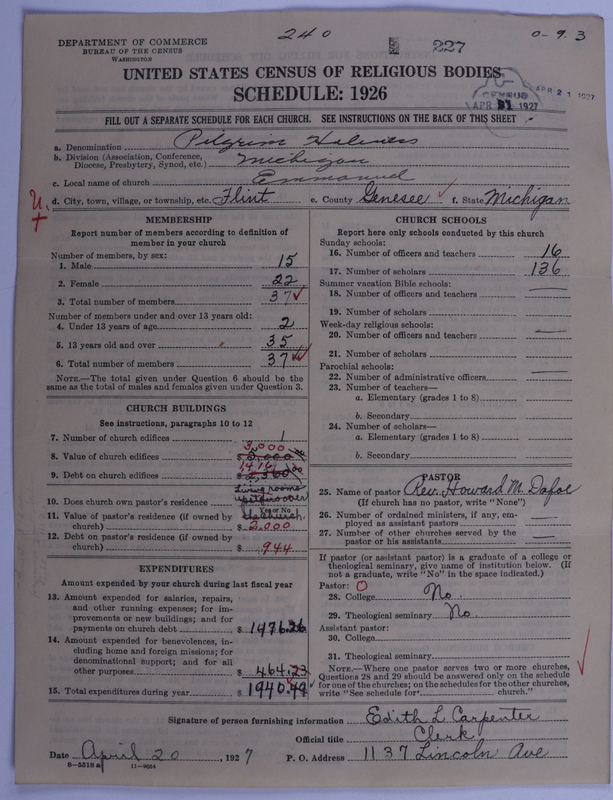 240
227
0-9.3
DEPARTMENT OF COMMERCE
BUREAU OF THE CENSUS
WASHINGTON
UNITED STATES CENSUS OF RELIGIOUS BODIES
SCHEDULE: 1926
CENSUS
APR 21 1927
APR 21 1927
FILL OUT A SEPARATE SCHEDULE FOR EACH CHURCH. SEE INSTRUCTIONS ON THE BACK OF THIS SHEET
a. Denomination Pilgrim Holiness
b. Division (Association, Conference, Diocese, Presbytery, Synod, etc.) Michigan
c. Local name of church Emmanuel
d. City, town, village, or township, etc. Flint e. County Genesee f. State Michigan
MEMBERSHIP
Report number of members according to definition of
member in your church
Number of members, by sex:
1. Male 15
2. Female 22
3. Total number of members 37
Number of members under and over 13 years old:
4. Under 13 years of age 2
5. 13 years old and over 35
6. Total number of members 37
NOTE.—The total given under Question 6 should be
same as the total of males and females given under Question 3.
CHURCH BUILDINGS
See instructions, paragraphs 10 to 12
7. Number of church edifices 1
3,000
8. Value of church edifices $ 5,000
1416
9. Debt on church edifices $ 2,360
Living rooms
10. Does church own pastor's residence upstairs over
Yes or No
11. Value of pastor's residence (if owned by the church
church) $ 2,000
12. Debt on pastor's residence (if owned by
church) $ 944
EXPENDITURES
Amount expended by your church during last fiscal year
13. Amount expended for salaries, repairs,
and other running expenses; for im-
provements or new buildings; and for
payments on church debt $ 1476.26
14. Amount expended for benevolences, in-
cluding home and foreign missions; for
denominational support; and for all
other purposes $ 464.23
15. Total expenditures during year $ 1940.49
CHURCH SCHOOLS
Report here only schools conducted by this church
Sunday schools:
16. Number of officers and teachers 16
17. Number of scholars 136
Summer vacation Bible schools:
18. Number of officers and teachers
19. Number of scholars
Week-day religious schools:
20. Number of officers and teachers
21. Number of scholars
Parochial schools:
22. Number of administrative officers
23. Number of teachers—
a. Elementary (grades 1 to 8)
b. Secondary
24. Number of scholars—
a. Elementary (grades 1 to 8)
b. Secondary
PASTOR
25. Name of pastor Rev. Howard M. Dafoe
(If church has no pastor, write "None")
26. Number of ordained ministers, if any, em-
ployed as assistant pastors
27. Number of other churches served by the
pastor or his assistants
If pastor (or assistant pastor) is a graduate of a college or
theological seminary, give name of institution below. (If
not a graduate, write "No" in the space indicated.)
Pastor: O
28. College No.
29. Theological seminary No.
Assistant pastor:
30. College
31. Theological seminary
NOTE.—Where one pastor serves two or more churches,
Questions 28 and 29 should be answered only on the schedule
for one of the churches; on the schedules for the other churches,
write "See schedule for church."
Signature of person furnishing information Edith L Carpenter
Official title Clerk
Date April 20, 1927 P. O. Address 1137 Lincoln Ave
8—5518a 11—9654